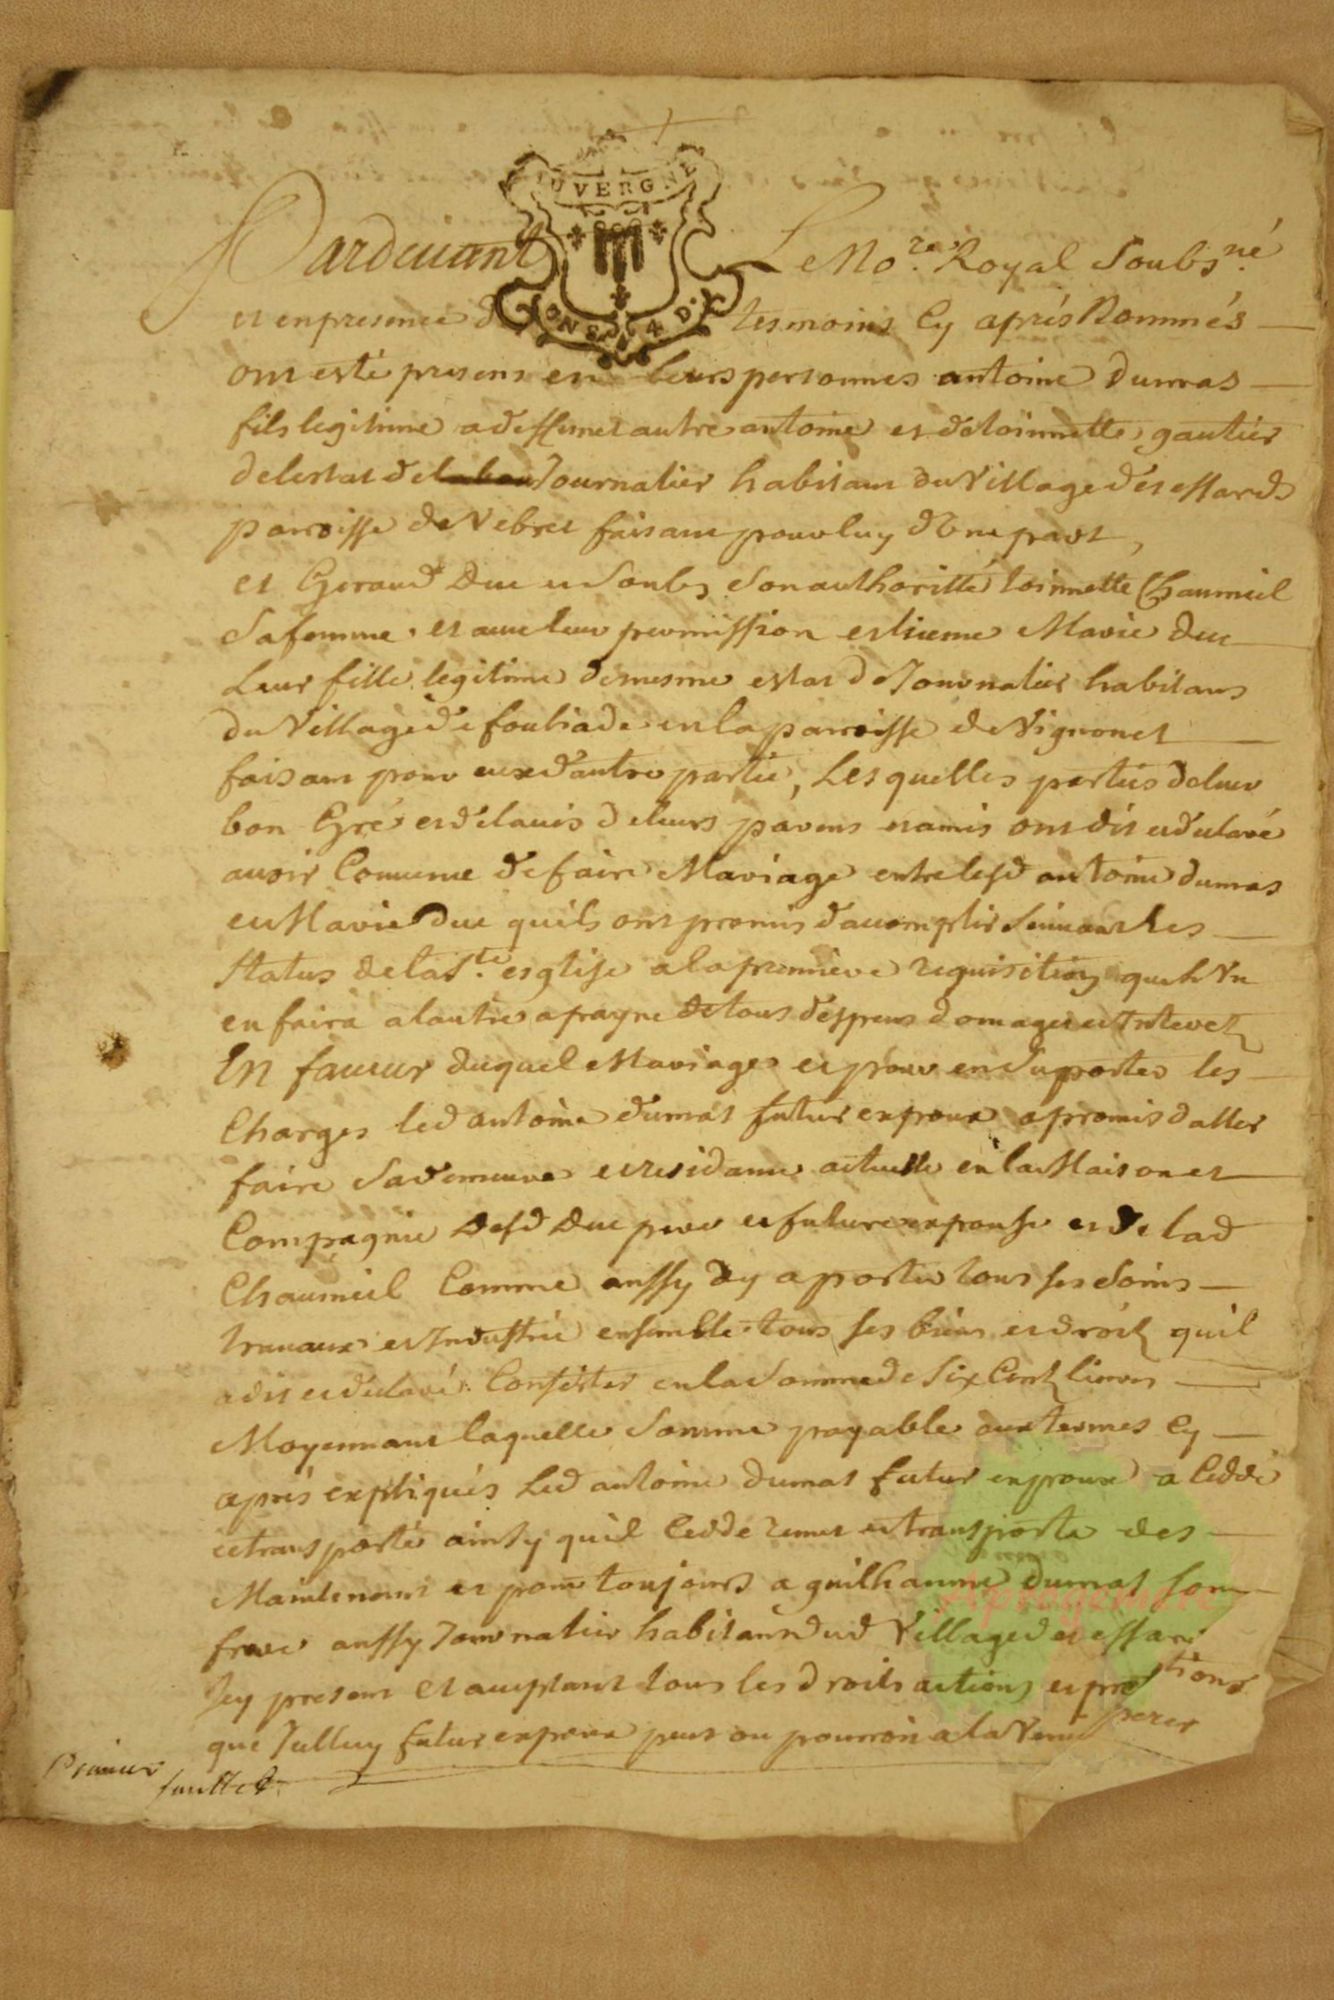 AUVERGNE
Pardevant Le No.re Royal Soubs.né
et en presence de tesmoins Cy aprés Nommés
ont esté presens en leurs personnes antoine dumas
fils legitime a deffunct autre antoine et de toinnette gautier
de lestat de Journalier habitant du Village des essards
parroisse de Vebret faisant pour luy d'Une part,
et Geraud Duc et Soubs Son authoritté toinnette Chaumeil
Sa femme, et avec leur permission et licence Marie Duc
Leur fille legitime de mesme estat de Journalier habitans
du Village de fouliade en la parroisse de Vignonet
faisant pour eux d'autre partie, Lesquelles parties de leur
bon Gré et de lavis de leurs parens et amis ont dit et declaré
avoir Convenu de faire Mariage entre lesd antoine dumas
et Marie Duc quils ont promis d'accomplir Suivant les
Status de la S.te esglise a la premiere requisition que l'Un
en faira a lautre a payne de tous despens domages et Interetz
En faveur duquel Mariage et pour en Suporter les
Charges led antoine dumas futur expoux a promis daller
faire Sa demeure et residance actuelle en la Maison et
Compagnie desd Duc pere et future expouse et de lad
Chaumeil Comme aussy dy aporter tous ses Soins
travaux et Industrie ensemble tous ses biens et droits quil
a dit et declaré Consister en la Somme de Six Centz livres
Moyennant laquelle Somme payable aux termes Cy
aprés expliqués Led antoine dumas futur expoux a Ceddé
et transporté ainsy quil Cedde remet et transporte des
Maintenant et pour toujours a guilhaume dumas Son
frere aussy Journalier habitant dud Village des essards
Icy present et acceptant tous les droits actions et pretentions
que Icelluy futur expoux peut ou pourroit a la Venir
Premier
feuillet
Aprogemere